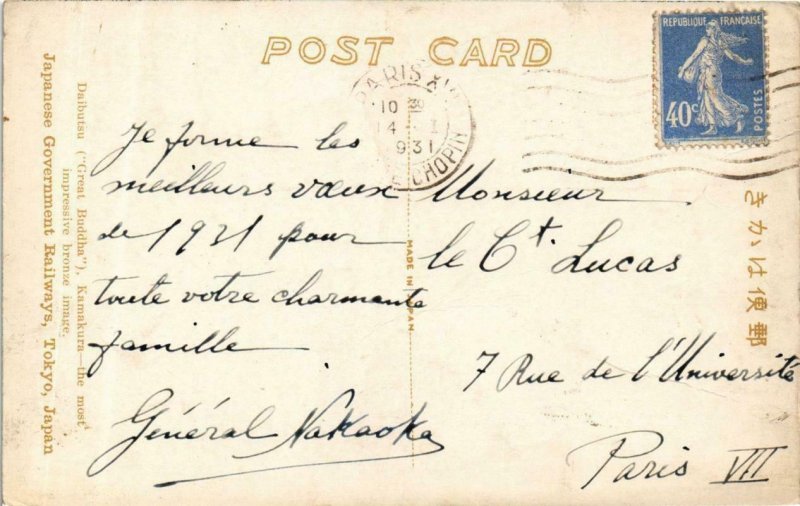 POST CARD
RÉPUBLIQUE FRANÇAISE
40c
POSTES
PARIS XVI
10 30
4 - I
931
CHOPIN
Je forme les
meilleurs vœux
de 1931 pour
toute votre charmante
famille
Général Nakaoka
Monsieur
le Ct Lucas
7 Rue de l'Université
Paris VII
MADE IN JAPAN
きかは便郵
Daibutsu ("Great Buddha"), Kamakura—the most
impressive bronze image.
Japanese Government Railways, Tokyo, Japan